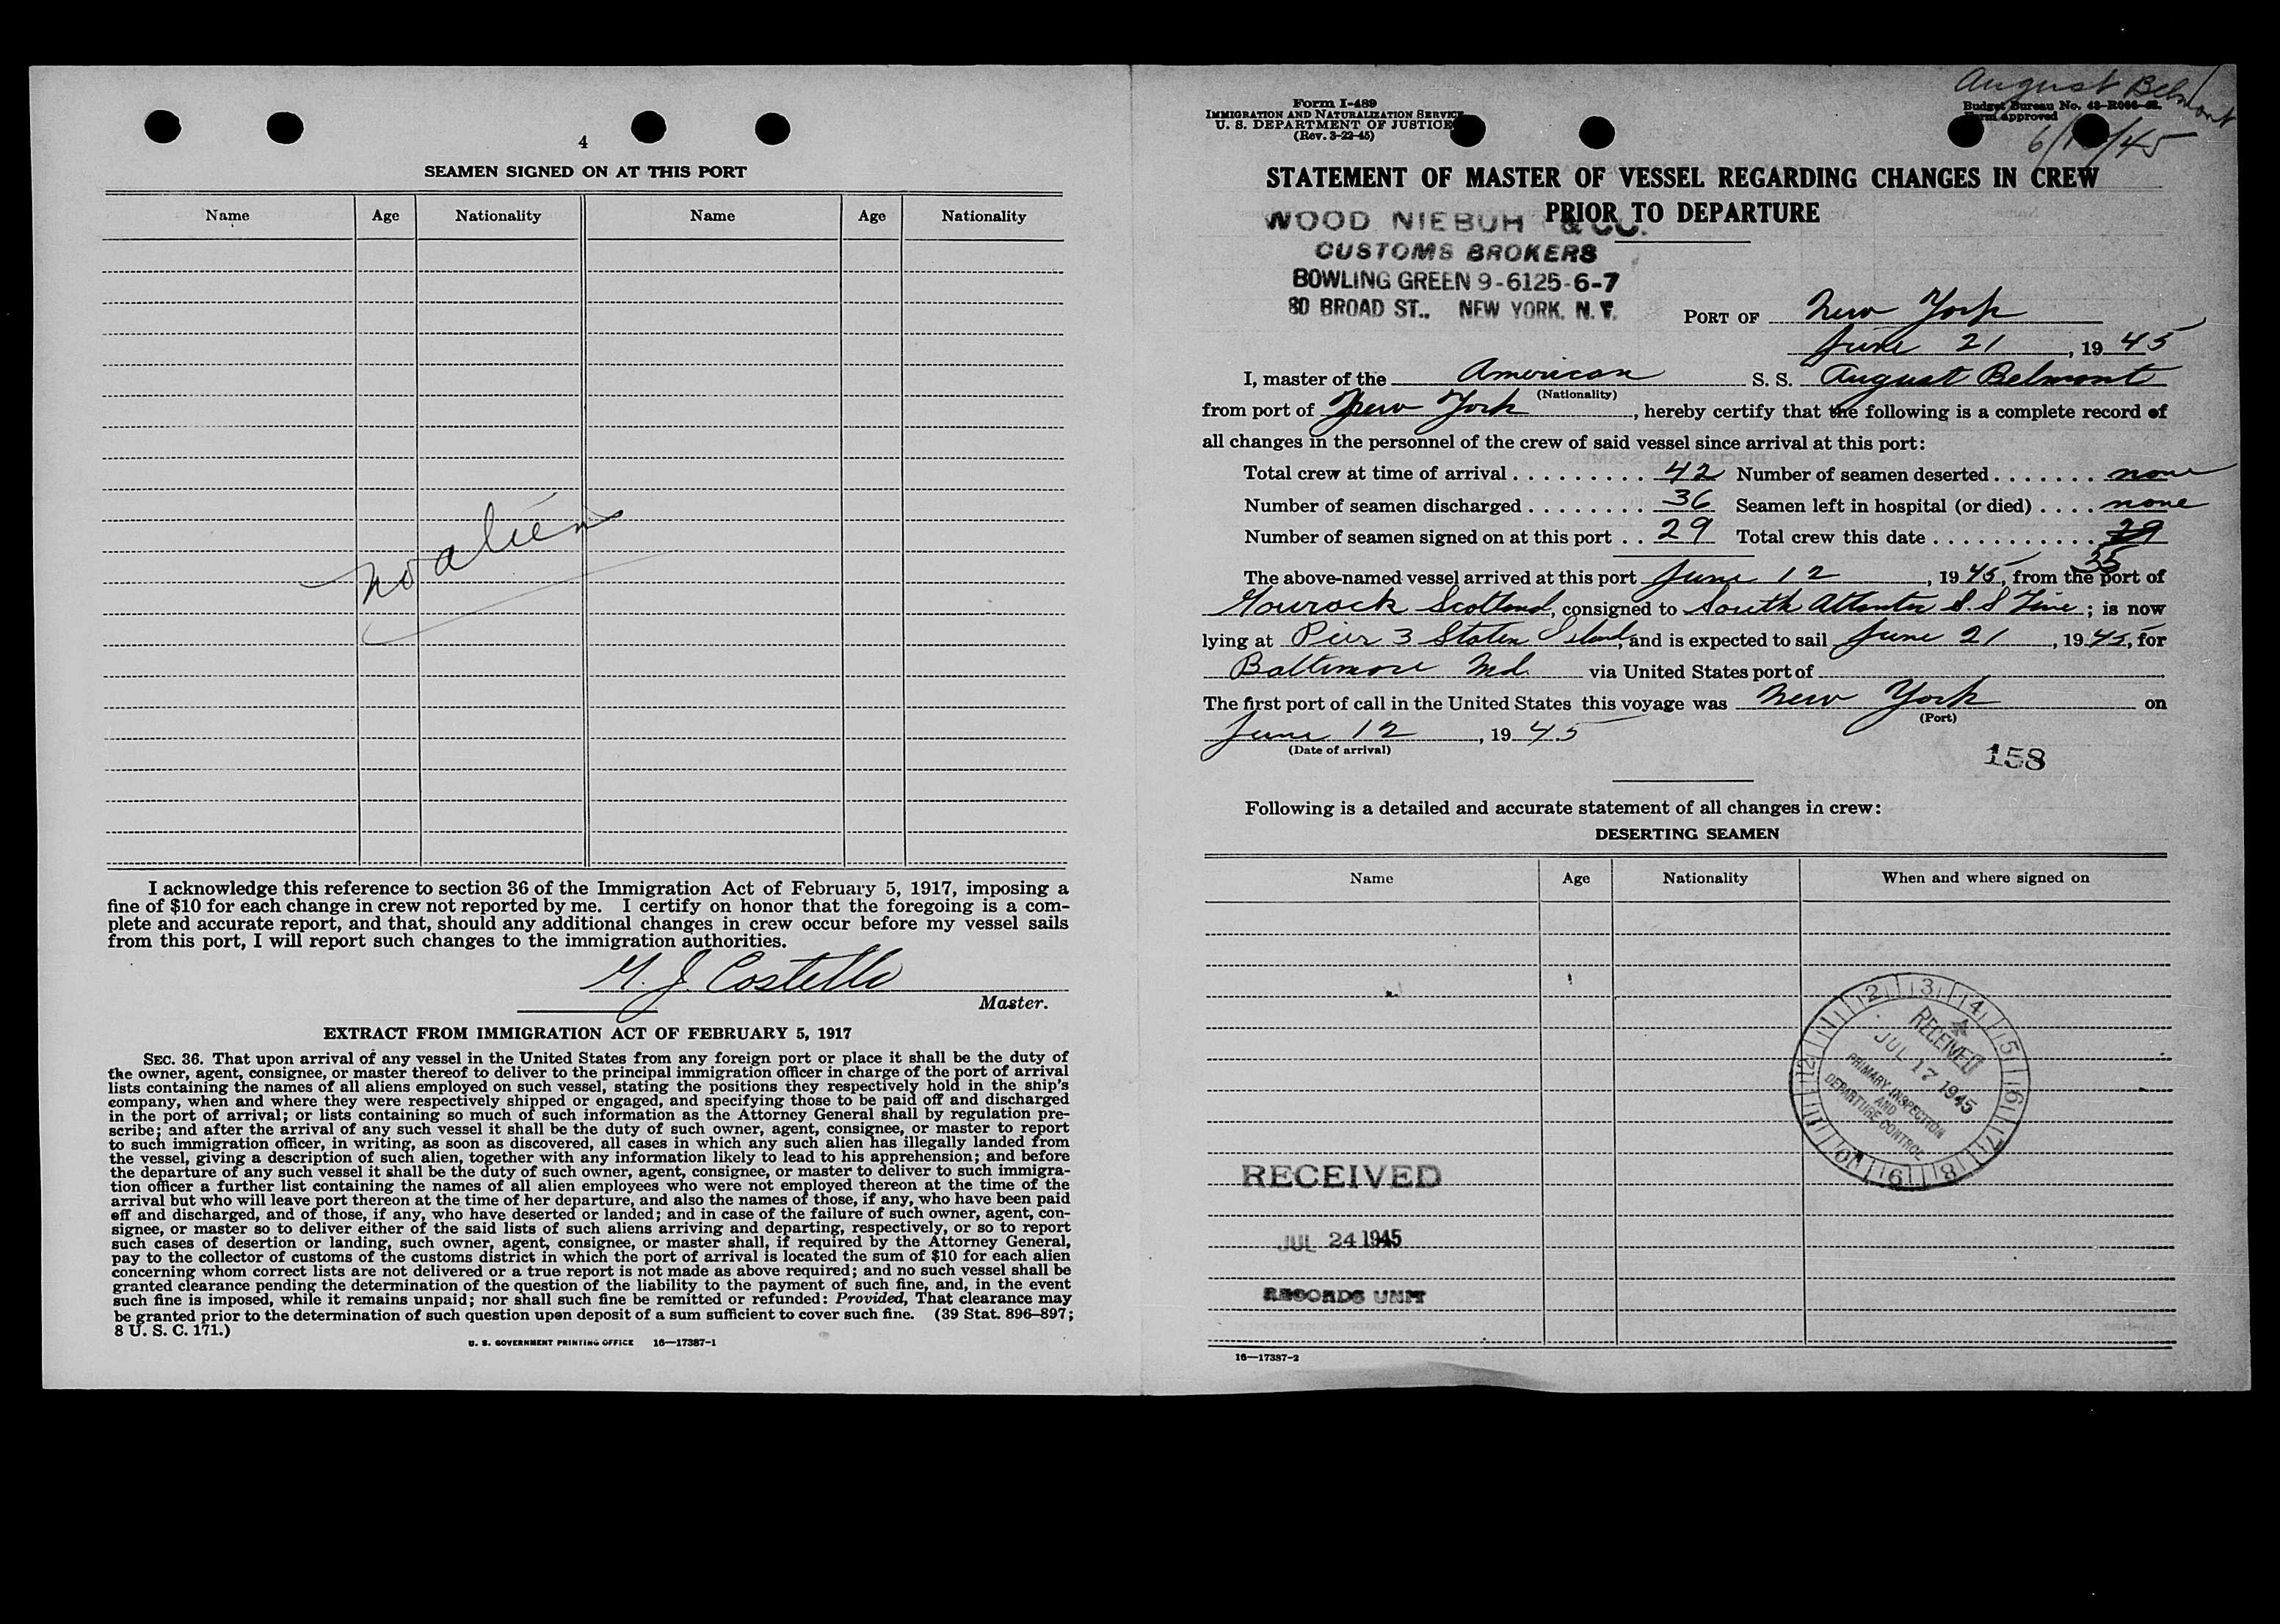 4
SEAMEN SIGNED ON AT THIS PORT
Name Age Nationality Name Age Nationality
no alien
I acknowledge this reference to section 36 of the Immigration Act of February 5, 1917, imposing a
fine of $10 for each change in crew not reported by me. I certify on honor that the foregoing is a com-
plete and accurate report, and that, should any additional changes in crew occur before my vessel sails
from this port, I will report such changes to the immigration authorities.
J. Costello
Master.
EXTRACT FROM IMMIGRATION ACT OF FEBRUARY 5, 1917
SEC. 36. That upon arrival of any vessel in the United States from any foreign port or place it shall be the duty of
the owner, agent, consignee, or master thereof to deliver to the principal immigration officer in charge of the port of arrival
lists containing the names of all aliens employed on such vessel, stating the positions they respectively hold in the ship's
company, when and where they were respectively shipped or engaged, and specifying those to be paid off and discharged
in the port of arrival; or lists containing so much of such information as the Attorney General shall by regulation pre-
scribe; and after the arrival of any such vessel it shall be the duty of such owner, agent, consignee, or master to report
to such immigration officer, in writing, as soon as discovered, all cases in which any such alien has illegally landed from
the vessel, giving a description of such alien, together with any information likely to lead to his apprehension; and before
the departure of any such vessel it shall be the duty of such owner, agent, consignee, or master to deliver to such immigra-
tion officer a further list containing the names of all alien employees who were not employed thereon at the time of the
arrival but who will leave port thereon at the time of her departure, and also the names of those, if any, who have been paid
off and discharged, and of those, if any, who have deserted or landed; and in case of the failure of such owner, agent, con-
signee, or master so to deliver either of the said lists of such aliens arriving and departing, respectively, or so to report
such cases of desertion or landing, such owner, agent, consignee, or master shall, if required by the Attorney General,
pay to the collector of customs of the customs district in which the port of arrival is located the sum of $10 for each alien
concerning whom correct lists are not delivered or a true report is not made as above required; and no such vessel shall be
granted clearance pending the determination of the question of the liability to the payment of such fine, and, in the event
such fine is imposed, while it remains unpaid; nor shall such fine be remitted or refunded: Provided, That clearance may
be granted prior to the determination of such question upon deposit of a sum sufficient to cover such fine. (39 Stat. 896–897;
8 U. S. C. 171.)
U. S. GOVERNMENT PRINTING OFFICE 16—17387-1
August Belmont
Form I-489
IMMIGRATION AND NATURALIZATION SERVICE
U. S. DEPARTMENT OF JUSTICE
(Rev. 3-22-45)
Budget Bureau No.
Form approved
STATEMENT OF MASTER OF VESSEL REGARDING CHANGES IN CREW
PRIOR TO DEPARTURE
WOOD NIEBUH & CO.
CUSTOMS BROKERS
BOWLING GREEN 9-6125-6-7
80 BROAD ST., NEW YORK, N. Y.
PORT OF New York
June 21, 1945
I, master of the American S. S. August Belmont
(Nationality)
from port of New York, hereby certify that the following is a complete record of
all changes in the personnel of the crew of said vessel since arrival at this port:
Total crew at time of arrival . . . . . . . . . 42 Number of seamen deserted . . . . . . . none
Number of seamen discharged . . . . . . . . 36 Seamen left in hospital (or died) . . . . none
Number of seamen signed on at this port . . 29 Total crew this date . . . . . . . . . . . . 29
35
The above-named vessel arrived at this port June 12, 1945, from the port of
Gourock Scotland, consigned to South Atlantic S. S Line; is now
lying at Pier 3 Staten Island, and is expected to sail June 21, 1945, for
Baltimore Md. via United States port of
The first port of call in the United States this voyage was New York on
(Port)
June 12, 1945
(Date of arrival)
158
Following is a detailed and accurate statement of all changes in crew:
DESERTING SEAMEN
Name Age Nationality When and where signed on
1 2 3 4 5 6 7 8 9 10 11 12
RECEIVED
JUL 17 1945
PRIMARY INSPECTION
AND
DEPARTURE CONTROL
RECEIVED
JUL 24 1945
RECORDS UNIT
16—17387-2